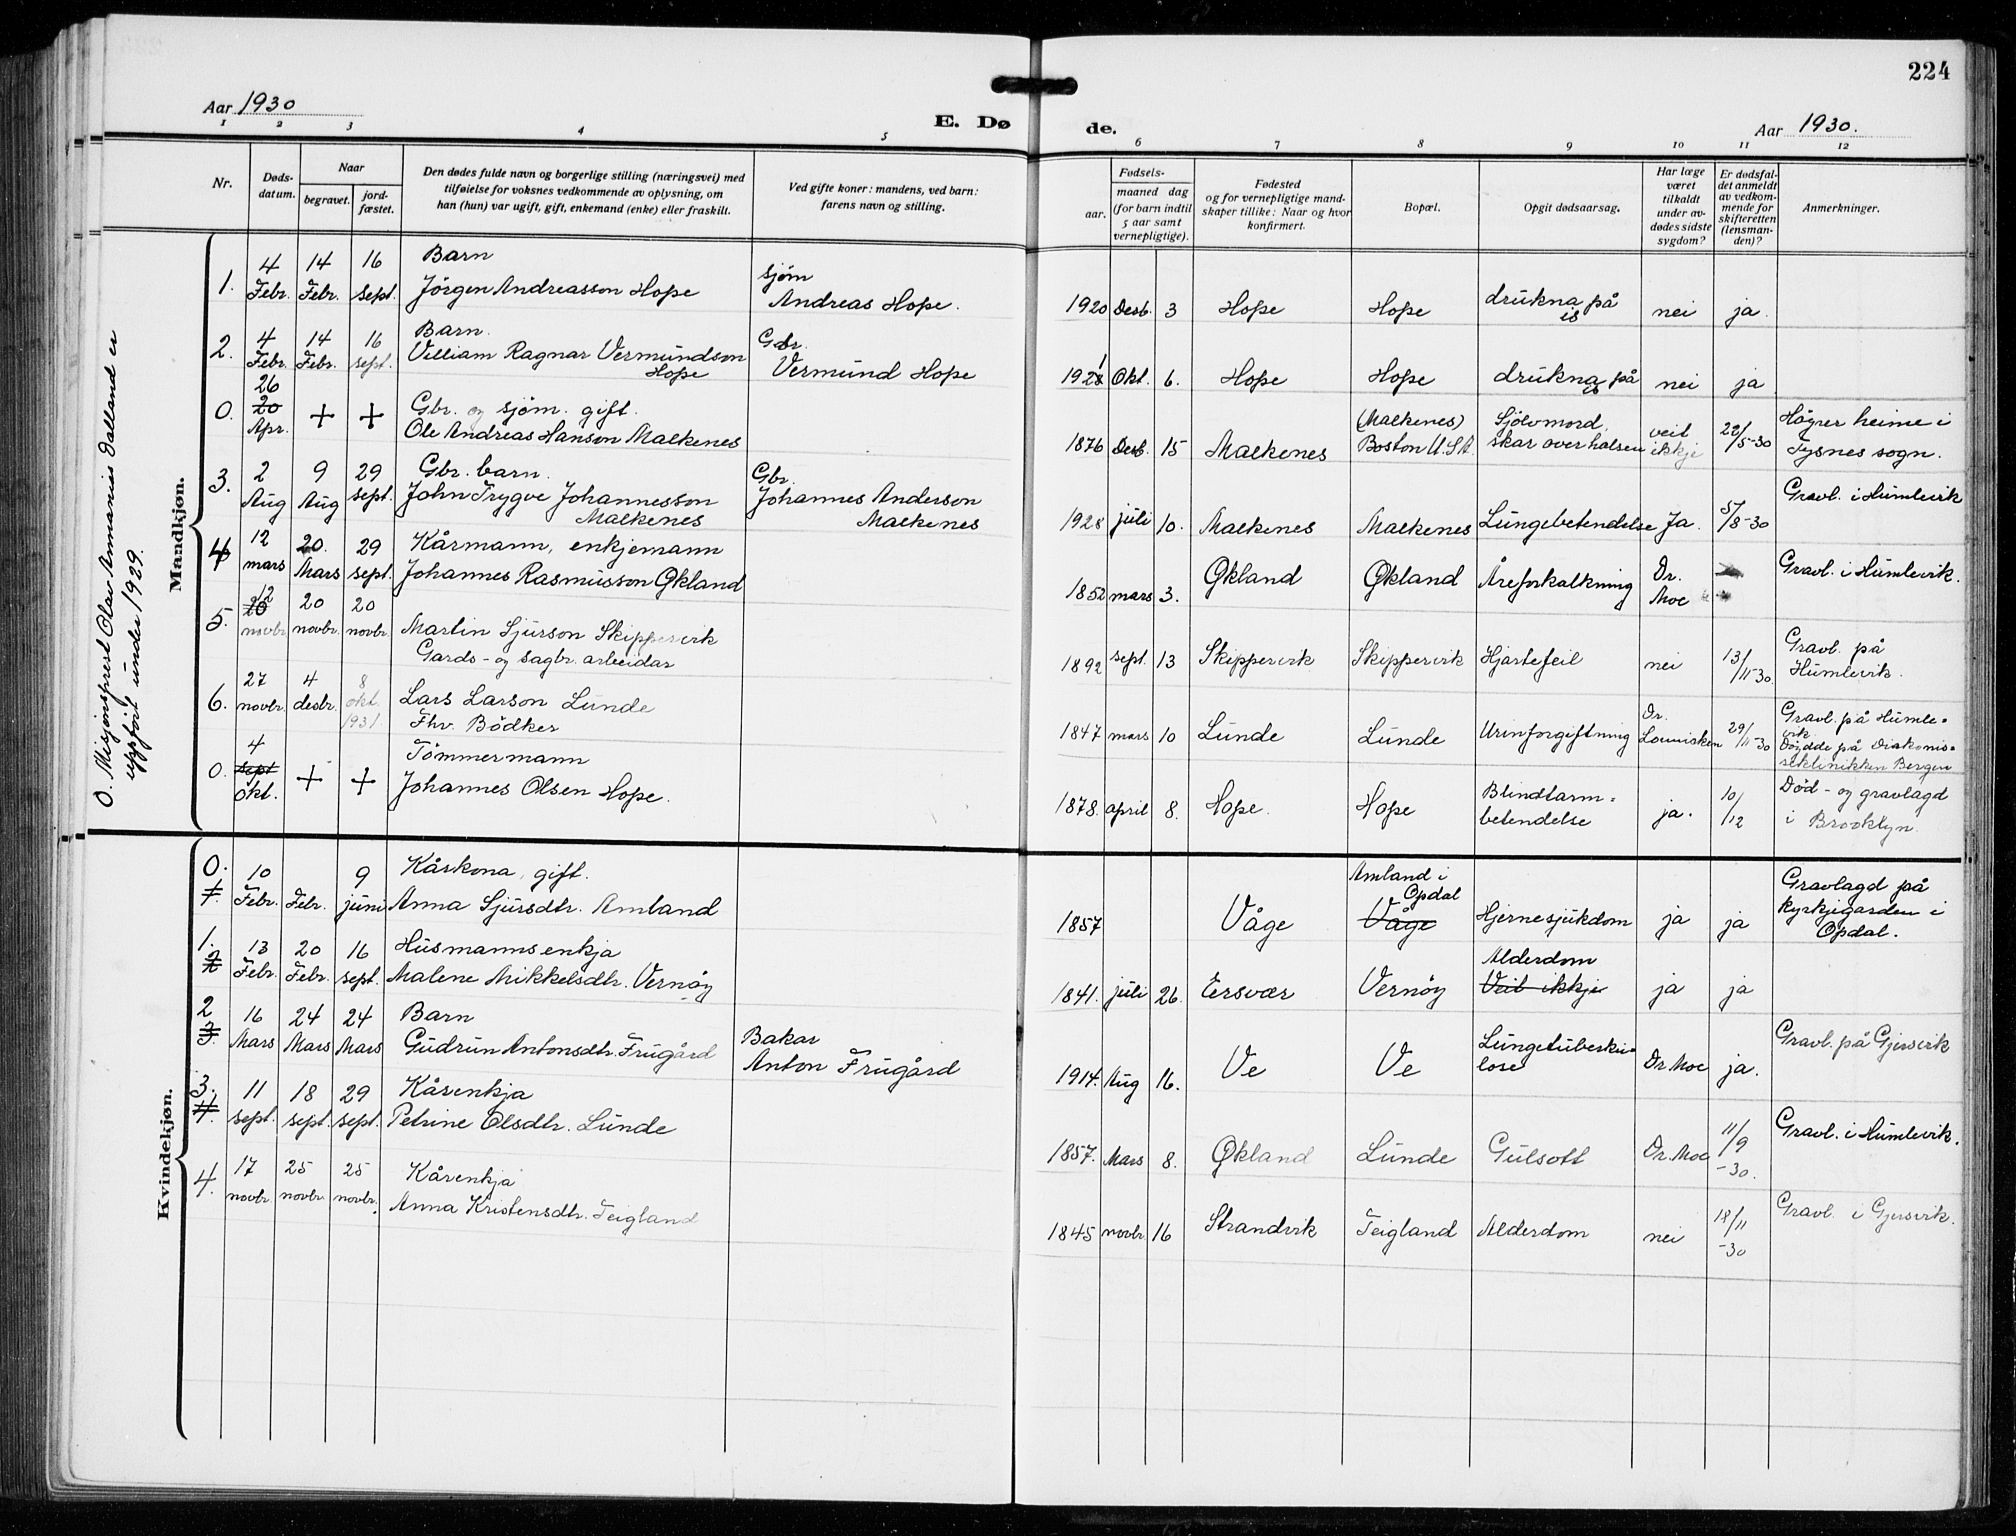 224
Aar 1930
E. Dø de.
Aar 1930.
1 2 3 4 5 6 7 8 9 10 11 12
Nr.
Døds-
datum.
Naar
begravet.
jord-
fæstet.
Den dødes fulde navn og borgerlige stilling (næringsvei) med
tilføielse for voksnes vedkommende av oplysning, om
han (hun) var ugift, gift, enkemand (enke) eller fraskilt.
Ved gifte koner: mandens, ved barn:
farens navn og stilling.
Fødsels-
aar.
maaned dag
(for barn indtil
5 aar samt
vernepligtige).
Fødested
og for vernepligtige mand-
skaper tillike: Naar og hvor
konfirmert.
Bopæl.
Opgit dødsaarsag.
Har læge
været
tilkaldt
under av-
dødes sidste
sygdom?
Er dødsfal-
det anmeldt
av vedkom-
mende for
skifteretten
(lensman-
den)?
Anmerkninger.
O. Misjonsprest Olav Ammanius Dalland er
uppført under 1929.
Mandkjøn.
4 14 16 Barn
1. Febr. Febr. sept. Jörgen Andreasson Hope
sjøm
Andreas Hope.
1920 Desb. 3 Hope Hope drukna på
is
nei ja.
4 14 16 Barn.
2. Febr. Febr. sept. Villiam Ragnar Vermundson
Hope
Gbr.
Vermund Hope
1921 Okt. 6. Hope Hope drukna på
is
nei ja
26
0. 20 + + Gbr. og sjøm. gift.
Apr. Ole Andreas Hanson Malkenes
1876 Desb. 15 Malkenes
(Malkenes)
Boston U.S.A.
Sjölvmord,
skar over halsen
veit
ikkje
22/5-30
Högrer heime i
Tysnes sogn.
3. 2 9 29 Gbr. barn.
Aug Aug sept. John Trygve Johannesson
Malkenes
Gbr.
Johannes Anderson
Malkenes
1928 juli 10. Malkenes Malkenes Lungebetendelse Ja. 5/8-30
Gravl. i Humlevik
4 12 20. 29 Kårmann, enkjemann
mars Mars sept. Johannes Rasmusson Økland
1852 mars 3. Økland Økland Åreforkalkning
Dr.
Moe
Gravl. i Humlevik.
12
5. 20 20 20
novbr. novbr. novbr. Martin Sjurson Skippervik
Gards- og sagbr. arbeidar
1892 sept. 13 Skippervik Skippervik Hjartefeil nei 13/11-30.
Gravl. på
Humlevik.
27 4 8
6. novbr. desbr. okt. Lars Larson Lunde
1931. Fhv. Bödker
1847 mars 10 Lunde Lunde Urinforgiftning
Dr.
29/11-30
Gravl. på Humle-
vik
Döydde på Diakonis-
seklinikken Bergen
4
0. sept + + Tömmermann
okt. Johannes Olsen Hope.
1878. april 8. Hope. Hope
Blindtarm-
betendelse
ja. 10/12
Död- og gravlagd
i Brooklyn.
Kvindekjøn.
0. 10 9 Kårkona, gift.
1. Febr. Febr. juni Anna Sjursdtr. Amland
1857 Våge
Amland i
Opdal
Våge
Hjernesjukdom ja ja
Gravlagd på
kyrkjegarden i
Opdal.
1. 13 20 16 Husmannsenkja
2 Febr. Febr. sept. Malene Mikkelsdtr. Vernöy
1841. juli 26. Ersvær Vernöy
Alderdom
Veit ikkje
ja ja
2 16 24 24 Barn
3. Mars Mars Mars Gudrun Antonsdtr. Frugård
Bakar
Anton Frugård
1914. Aug 16. Ve Ve
Lungetuberku-
lose
Dr. Moe ja.
Gravl. på Gjersvik
3. 11 18 29 Kårenkja
4. sept. sept. sept. Petrine Olsdtr. Lunde
1857. Mars 8. Økland Lunde Gulsott Dr. Moe
11/9
-30.
Gravl. i Humlevik.
4. 17 25 25 Kårenkja
novbr. novbr. novbr. Anna Kristensdtr. Teigland
1845 novbr 16 Strandvik Teigland Alderdom nei
18/11
-30
Gravl. i Gjersvik.